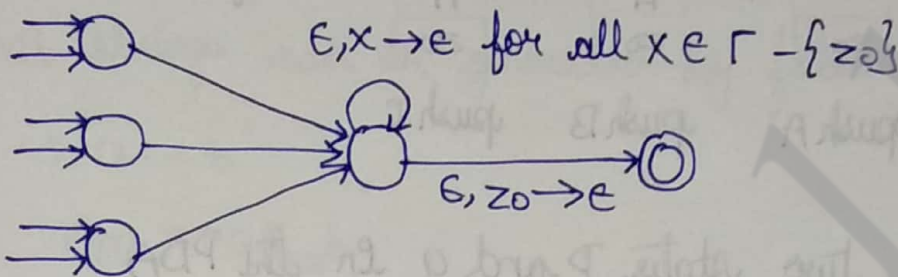 ϵ, x → ϵ for all x ∈ Γ - {z0}
ϵ, z0 → ϵ